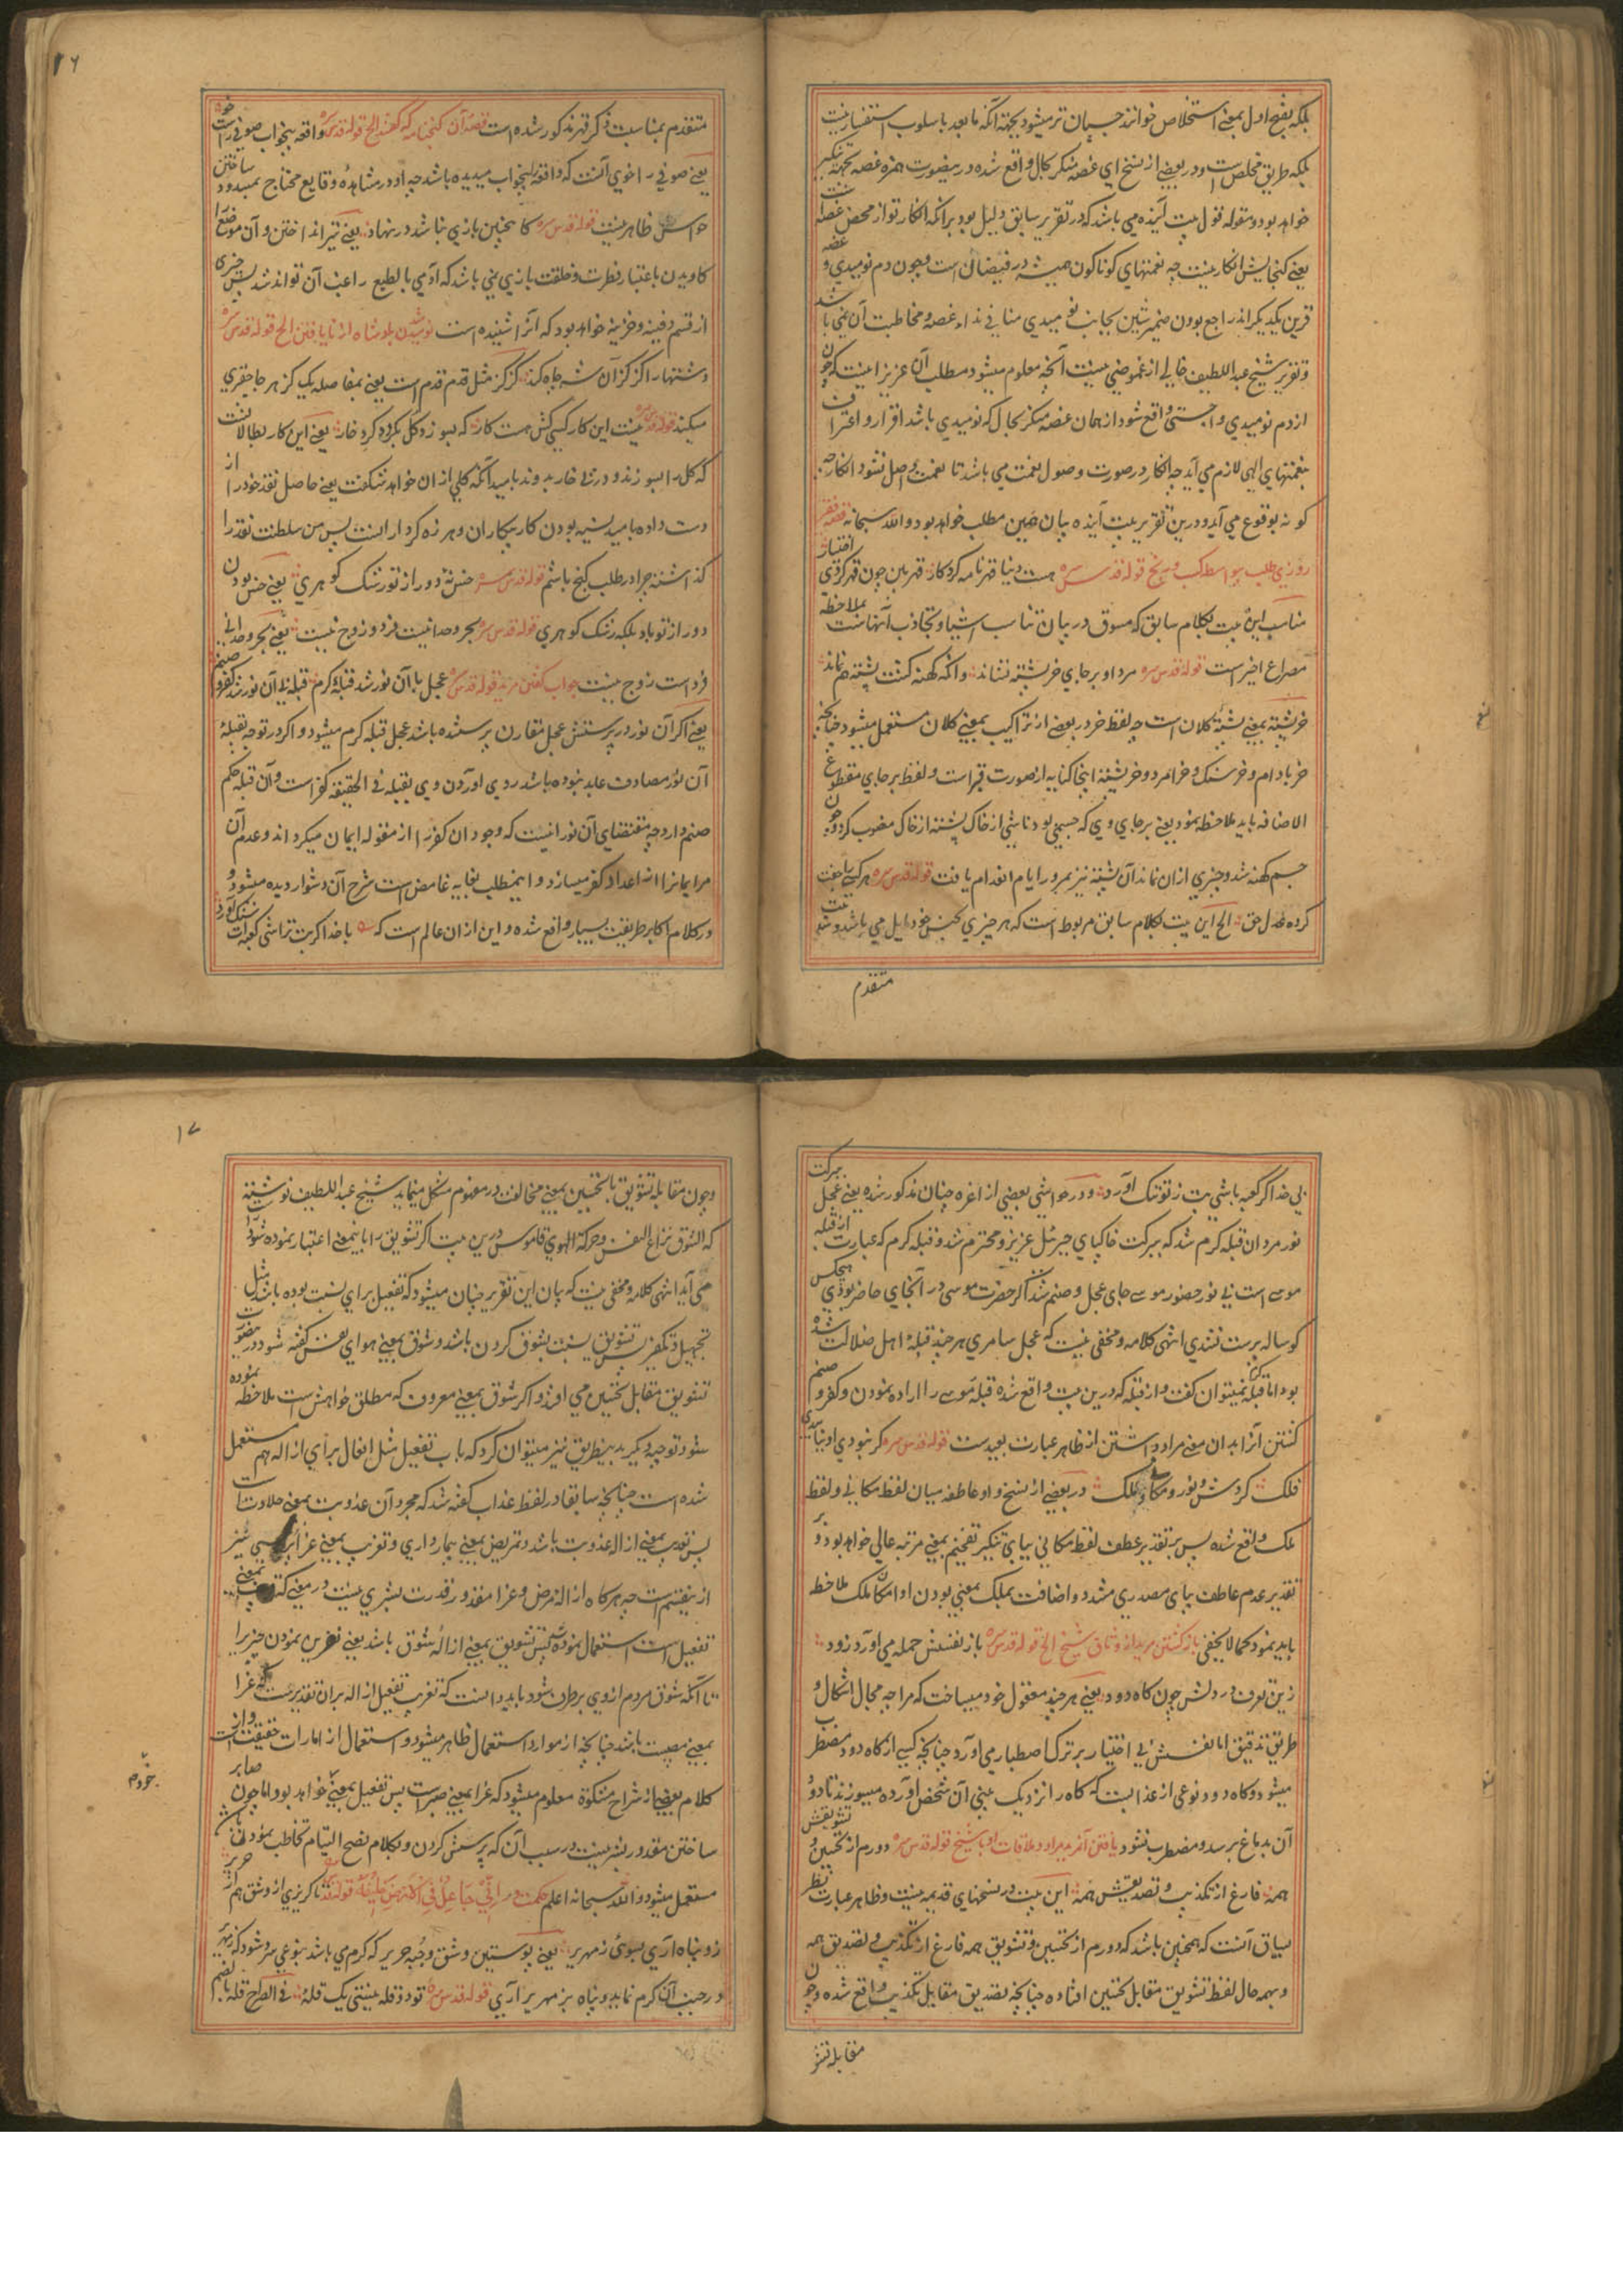 بلکه بفتح اول بمعنی استخلاص خوانند چسپان تر میشود بجهة آنکه مابعد باسلوب استفسار نیست
بلکه طریق مخلص است و در بعضی از نسخ ای غصه منکر بحال واقع شده در ینصورت همزه غصه بجهة تنکیر
خواهد بود و مقوله قول بیت آینده می باشد که در تقریر سابق دلیل بود بر آنکه انکار تو از محض غصه است
یعنی گنجایش انکار نیست چه نعمتهای کوناکون همیشه در فیضان است و چون دم نومیدی و غصه
قرین یکدیگراند راجع بودن ضمیر بجانب نومیدی منافی نداء غصه و مخاطبت آن نمی باشد
و تقریر شیخ عبد اللطیف خالی از غموضی نیست آنچه معلوم میشود مطلب آن عزیز اینست که چون
از دم نومیدی واجستی واقع شود از همان غصه منکر بحال که نومیدی باشد اقرار و اعتراف
بنعمتهای الهی لازم می آید چه انکار در صورت وصول نعمت می باشد تا نعمت واصل نشود انکار چه
کونه بوقوع می آید و درین تقریر بیت آینده بیان همین مطلب خواهد بود والله سبحانه قصه فقیر
روزی طلب بیواسطه کسب و رنج قوله قدس سره هست دنیا قهرنامه کردکار قهر بین چون قهر کردی اختیار
مناسب این بیت بکلام سابق که مسوق در بیان تناسب اشیا و تجاذب آنهاست بملاحظه
مصراع اخیر است قوله قدس سره مرد او بر جای خرپشته نشاند وانکه کهنه کشت پشته هم نماند
خرپشته بمعنی پشته کلان است چه لفظ خر در بعضی از تراکیب بمعنی کلان مستعمل میشود چنانچه
خر بادام و خرسنک و خرامرود و خرپشته اینجا کنایه از صورت قبر است و لفظ بر جای مقطوع
الاضافه باید ملاحظه نمود یعنی بر جای وی که جسمی بود ناشی از خاک پشته از خاک منصوب کرد و چون
جسم کهنه شد و چیزی ازان نماند آن پشته نیز بمرور ایام انعدام یافت قوله قدس سره هر کسی را جفت
کرده عدل حق الخ این بیت بکلام سابق مربوط است که هر چیزی بجنس خود مایل می باشد و بیت
متقدم
۱۶
متقدم بمناسبت ذکر قهر مذکور شده است قصه آن کنجنامه که گفتند الخ قوله قدس سره واقعه بیخواب صوفی راست خو
یعنی صوفی را خوی آنست که واقعه بیخواب میدیده باشد چه او در مشاهده وقایع محتاج بمسدود ساختن
حواس ظاهر نیست قوله قدس سره کاینچنین بازی نباشد در نهاد یعنی تیر انداختن و آن موضع را
کاویدن باعتبار فطرت و خلقت بازیی نمی باشد که آدمی بالطبع راغب آن تواند شد پس چیزی
از قسم دفینه و خزینه خواهد بود که آنرا شنیده است نومید شدن پادشاه از نایافتن الخ قوله قدس سره
دشتها را کز کز آن شه چاه کند کز کز مثل قدم قدم است یعنی بفاصله یک کز هر جا حفری
میکند قوله قدس سره نیست این کار کسی کش هست کار که بسوزد کل بکردد کرد خار یعنی این کار بطالانست
که کل را بسوزند و در پی خار بدوند بامید آنکه کلی ازان خواهد شکفت یعنی حاصل نقد خود را از
دست داده بامید نسیه بودن کار بیکاران و هرزه کردارانست پس من سلطنت نقد را
گذاشته چرا در طلب کنج باشم قوله قدس سره جنس نه دور از تو رشک کوهری یعنی جنس بودن
دور از تو باد بلکه رشک کوهری قوله قدس سره بحر وحدانیست فرد و زوج نیست یعنی بحر وحدانی
فرد است زوج نیست جواب گفتن مرید قوله قدس سره عجل با آن نور شد قبله کرم قبله بی آن نور شد کفر و صنم
یعنی اگر آن نور در پرستش عجل مقارن پرستنده باشد عجل قبله کرم میشود و اگر در توجه بقبله
آن نور مصادف عابد نبوده باشد روی اوردن وی بقبله فی الحقیقه کفر است و آن قبله حکم
صنم دارد چه مقتضای آن نورانیست که وجود ان کفر را از مقوله ایمان میکرداند و عدم آن
مر ایمانرا از اعداد کفر میسازد و اینمطلب بغایه غامض است شرح آن دشوار دیده میشود و
در کلام اکابر طریقت بسیار واقع شده و این ازان عالم است که با خدا کر بت تراشی کعبه را سنک آورد
بی خدا گر کعبه باشی بت ز تو ننک آورد و در حواشی بعضی از اعزه چنان مذکور شده یعنی عجل ببرکت
نور مردان قبله کرم شد که ببرکت خاکپای جبرئیل عزیز و محترم شد و قبله کرم که عبارت از قبله
موسی است بی نور حضور موسی جای عجل و صنم شد اگر حضرت موسی در آنجای حاضر بودی هیچکس
کوساله پرست نشدی انتهی کلامه و مخفی نیست که عجل سامری هر چند قبله اهل ضلالت شده
بود اما قبله کرم نمیتوان کفت و از قبله که درین بیت واقع شده قبله موسی را اراده نمودن و کفر و صنم
کشتن آنرا بدان معنی مراد داشتن از ظاهر عبارت بعید است قوله قدس سره کر نبودی او نیابیدی
فلک کردش و نور و مکانی ملک در بعضی از نسخ واو عاطفه میان لفظ مکانی و لفظ
ملک واقع شده پس بر تقدیر عطف لفظ مکانی بیای تنکیر تفخیم بمعنی مرتبه عالی خواهد بود و بر
تقدیر عدم عاطف بیای مصدری مشدد و اضافت بملک بمعنی بودن او امکان ملک ملاحظه
باید نمود کما لا یخفی بازکشتن مرید از وثاق شیخ الخ قوله قدس سره باز نفسش حمله می آورد زود
زین تعرف در دلش چون کاه دود یعنی هر چند معقول خود میساخت که مرا چه مجال اشکال و
طریق تدقیق اما نفسش بی اختیار بر ترک اصطبار می آورد چنانچه کسی از کاه دود مضطرب
میشود و کاه دود نوعی از عذابست که کاه را نزدیک بینی آن شخص آورده میسوزند تا دود
آن بدماغ برسد و مضطرب شود یافتن آن مرید مراد و ملاقات او با شیخ قوله قدس سره دورم از تحسین و تشویقش
همه فارغ از تکذیب و تصدیقش همه این بیت در نسخهای قدیمه نیست و ظاهر عبارت نظر
بسیاق آنست که همچنین باشد که دورم از تحسین و تشویق همه فارغ از تکذیب و تصدیق همه
و بهمه حال لفظ تشویق مقابل تحسین افتاده چنانچه تصدیق مقابل تکذیب واقع شده و چون
مقابله تشو
۱۷
و چون مقابله تشویق با تحسین بمعنی مخالفت در مفهوم مشکل مینماید شیخ عبد اللطیف نوشته
که الشوق نزاع النفس و حرکة الهوی قاموس درین بیت اگر تشویق را باینمعنی اعتبار نموده شود راست
می آید انتهی کلامه و مخفی نیست که بیان این تقریر چنان میشود که تفعیل برای نسبت بوده باشد مثل
تجهیل و تکفیر پس تشویق نسبت بشوق کردن باشد و شوق بمعنی هوای نفس کفته شود و درینصورت
تشویق مقابل تحسین می افتد و اگر شوق بمعنی معروف که مطلق خواهش است ملاحظه نموده
شود توجیه دیگر بدینطریق نیز میتوان کرد که باب تفعیل مثل افعال برای ازاله هم مستعمل
شده است چنانچه سابقا در لفظ عذاب کفته شد که مجرد آن عذوبت بمعنی حلاوت است
پس تعذیب بمعنی ازاله عذوبت باشد و تمریض بمعنی بیمارداری و تعزیت بمعنی عزاپرسی نیز
ازینقسم است چه هرگاه ازاله مرض و عزا مقدور قدرت بشری نیست در معنی که بمعنی
تفعیل است استعمال نموده شد پس تشویق بمعنی ازاله شوق باشد یعنی نفرین نمودن چیزیرا
تا آنکه شوق مردم از وی برطرف شود باید دانست که تعزیت تفعیل ازاله بران تقدیرست که عزا
بمعنی مصیبت باشد چنانچه از موارد استعمال ظاهر میشود و استعمال از امارات حقیقت است و از
کلام بعضی از شراح مشکوة معلوم میشود که عزا بمعنی صبر است پس تفعیل بمعنی خواهد بود و اما چون صابر
ساختن مقدور بشر نیست در سبب آن که پرسش کردن و بکلام نصح التیام مخاطب نمودن باشد
مستعمل میشود والله سبحانه اعلم حکمت در انی جاعل فی الارض خلیفة قوله قدس سره تا گریزی از وشق هم از حریر
زو پناه آری بسوی زمهریر یعنی پوستین وشق و جبه حریر که کرم می باشد بنوعی سرد شود که زمهریر
در جنب آن کرم نماید و پناه بزمهریر آری قوله قدس سره تو دو قله نیستی یک قله فی الصراح قله بالضم